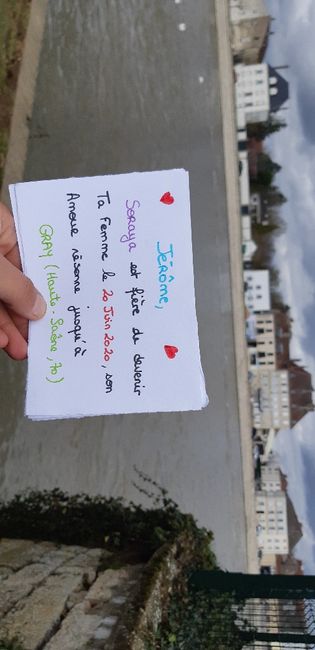 Jérôme,
Soraya est fière de devenir
Ta Femme le 20 Juin 2020, son
Amour résonne jusqu'à
GRAY (Haute-Saône, 70)